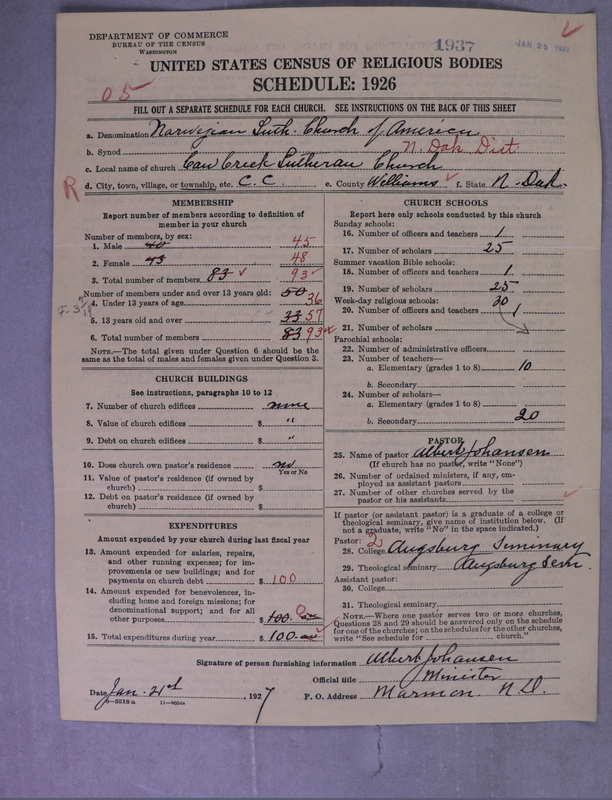 DEPARTMENT OF COMMERCE
BUREAU OF THE CENSUS
WASHINGTON
1937
JAN 25 1927
UNITED STATES CENSUS OF RELIGIOUS BODIES
SCHEDULE: 1926
05
FILL OUT A SEPARATE SCHEDULE FOR EACH CHURCH. SEE INSTRUCTIONS ON THE BACK OF THIS SHEET
a. Denomination Norwegian Luth. Church of America
b. Synod N. Dak Dist.
c. Local name of church Cow Creek Lutheran Church
R d. City, town, village, or township, etc. C. C. e. County Williams f. State N. Dak.
MEMBERSHIP
Report number of members according to definition of
member in your church
Number of members, by sex:
1. Male 40 45
2. Female 43 48
3. Total number of members 83 93
Number of members under and over 13 years old:
4. Under 13 years of age 50 36
5. 13 years old and over 33 57
6. Total number of members 83 93
NOTE.—The total given under Question 6 should be the
same as the total of males and females given under Question 3.
CHURCH BUILDINGS
See instructions, paragraphs 10 to 12
7. Number of church edifices none
8. Value of church edifices $ "
9. Debt on church edifices $ "
10. Does church own pastor's residence no
Yes or No
11. Value of pastor's residence (if owned by
church) $
12. Debt on pastor's residence (if owned by
church) $
EXPENDITURES
Amount expended by your church during last fiscal year
13. Amount expended for salaries, repairs,
and other running expenses; for im-
provements or new buildings; and for
payments on church debt $ 100
14. Amount expended for benevolences, in-
cluding home and foreign missions; for
denominational support; and for all
other purposes $ 100.00 0
15. Total expenditures during year $ 100.00
CHURCH SCHOOLS
Report here only schools conducted by this church
Sunday schools:
16. Number of officers and teachers 1
17. Number of scholars 25
Summer vacation Bible schools:
18. Number of officers and teachers 1
19. Number of scholars 25
Week-day religious schools: 30
20. Number of officers and teachers 1
21. Number of scholars
Parochial schools:
22. Number of administrative officers
23. Number of teachers—
a. Elementary (grades 1 to 8) 10
b. Secondary
24. Number of scholars—
a. Elementary (grades 1 to 8)
b. Secondary 20
PASTOR
25. Name of pastor Albert Johansen
(If church has no pastor, write "None")
26. Number of ordained ministers, if any, em-
ployed as assistant pastors
27. Number of other churches served by the
pastor or his assistants
If pastor (or assistant pastor) is a graduate of a college or
theological seminary, give name of institution below. (If
not a graduate, write "No" in the space indicated.)
Pastor: 2
28. College Augsburg Seminary
29. Theological seminary Augsburg Sem.
Assistant pastor:
30. College
31. Theological seminary
NOTE.—Where one pastor serves two or more churches,
Questions 28 and 29 should be answered only on the schedule
for one of the churches; on the schedules for the other churches,
write "See schedule for church."
Signature of person furnishing information Albert Johansen
Official title Minister
Date Jan. 21st, 1927 P. O. Address Marmon. N.D.